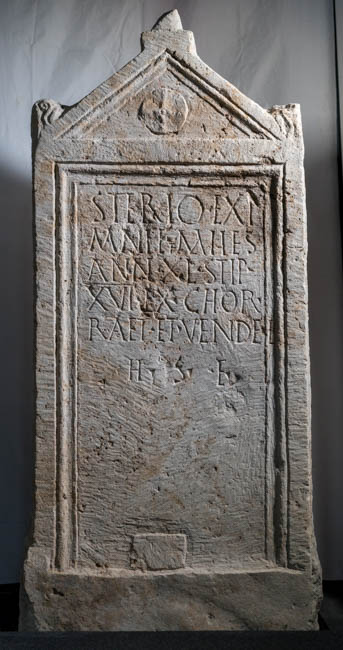 STERIO · EXI
MNII · F · MILES
ANN · XL · STIP ·
XVI · EX · CHOR ·
RAET · ET · VENDEL
H · S · E